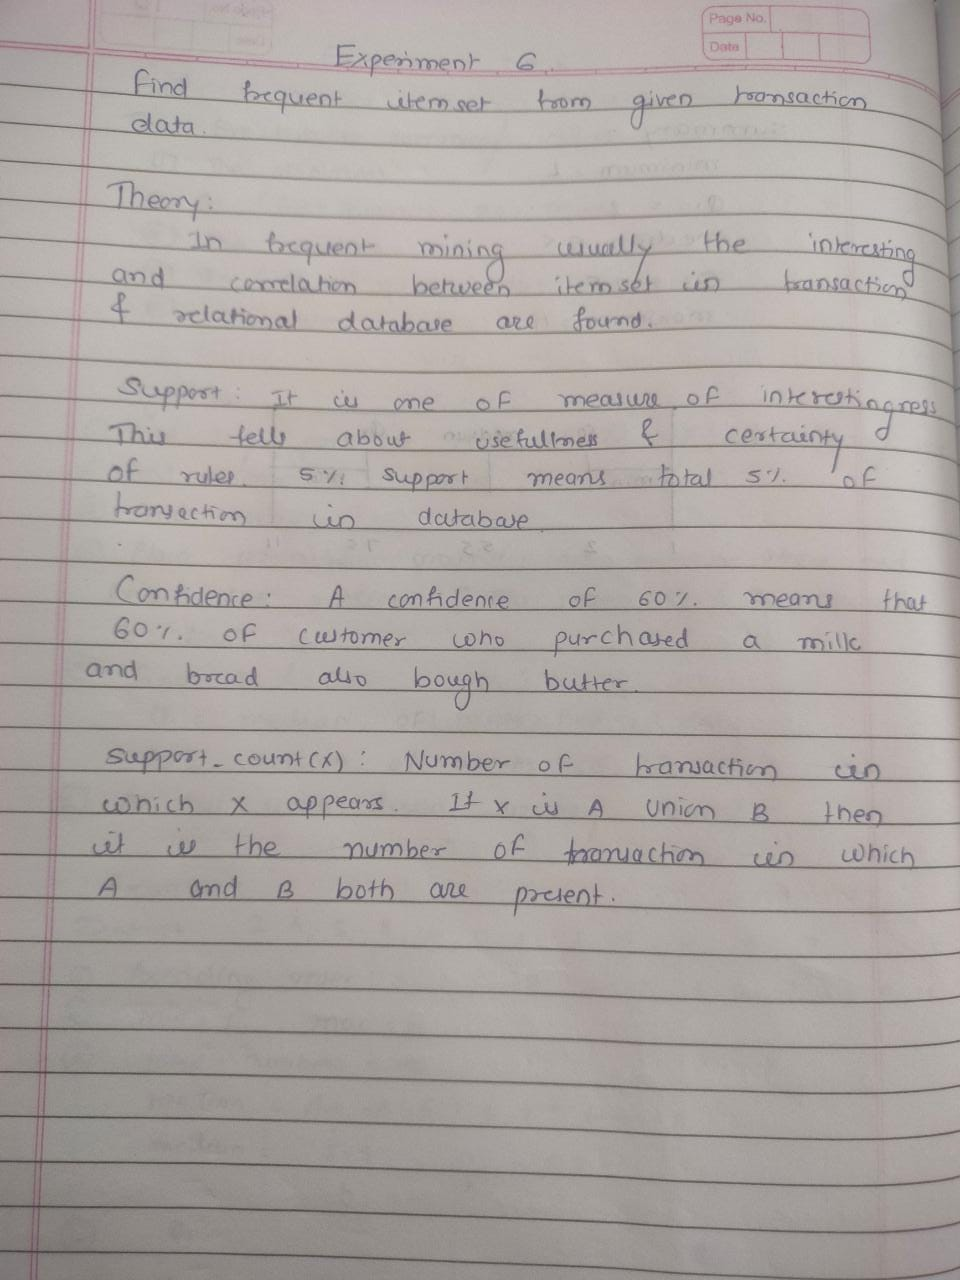 Page No.
Date
Experiment 6.
Find frequent itemset from given transaction
data.
Theory:
In frequent mining usually the interesting
and correlation between itemset in transaction
& relational database are found.
Support: It is one of measure of interestingness
This tells about usefullness & certainty
of rules. 5% support means total 5% of
transaction in database.
Confidence: A confidence of 60% means that
60% of customer who purchased a milk
and bread also bough butter.
Support_count(X): Number of transaction in
which X appears. If X is A union B then
it is the number of transaction in which
A and B both are present.